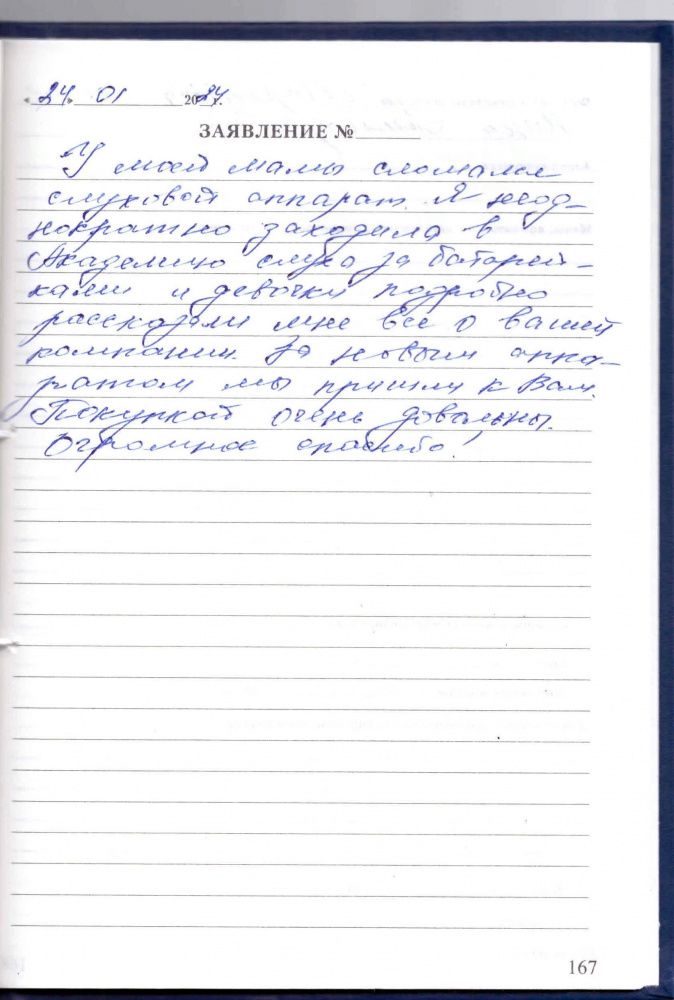 « 24 » 01 2024 г.
ЗАЯВЛЕНИЕ № ______
У моей мамы сломался
слуховой аппарат. Я неод-
нократно заходила в
Академию слуха за батарей-
ками и девочки подробно
рассказали мне все о вашей
компании. За новым аппа-
ратом мы пришли к Вам.
Покупкой очень довольны.
Огромное спасибо!
167